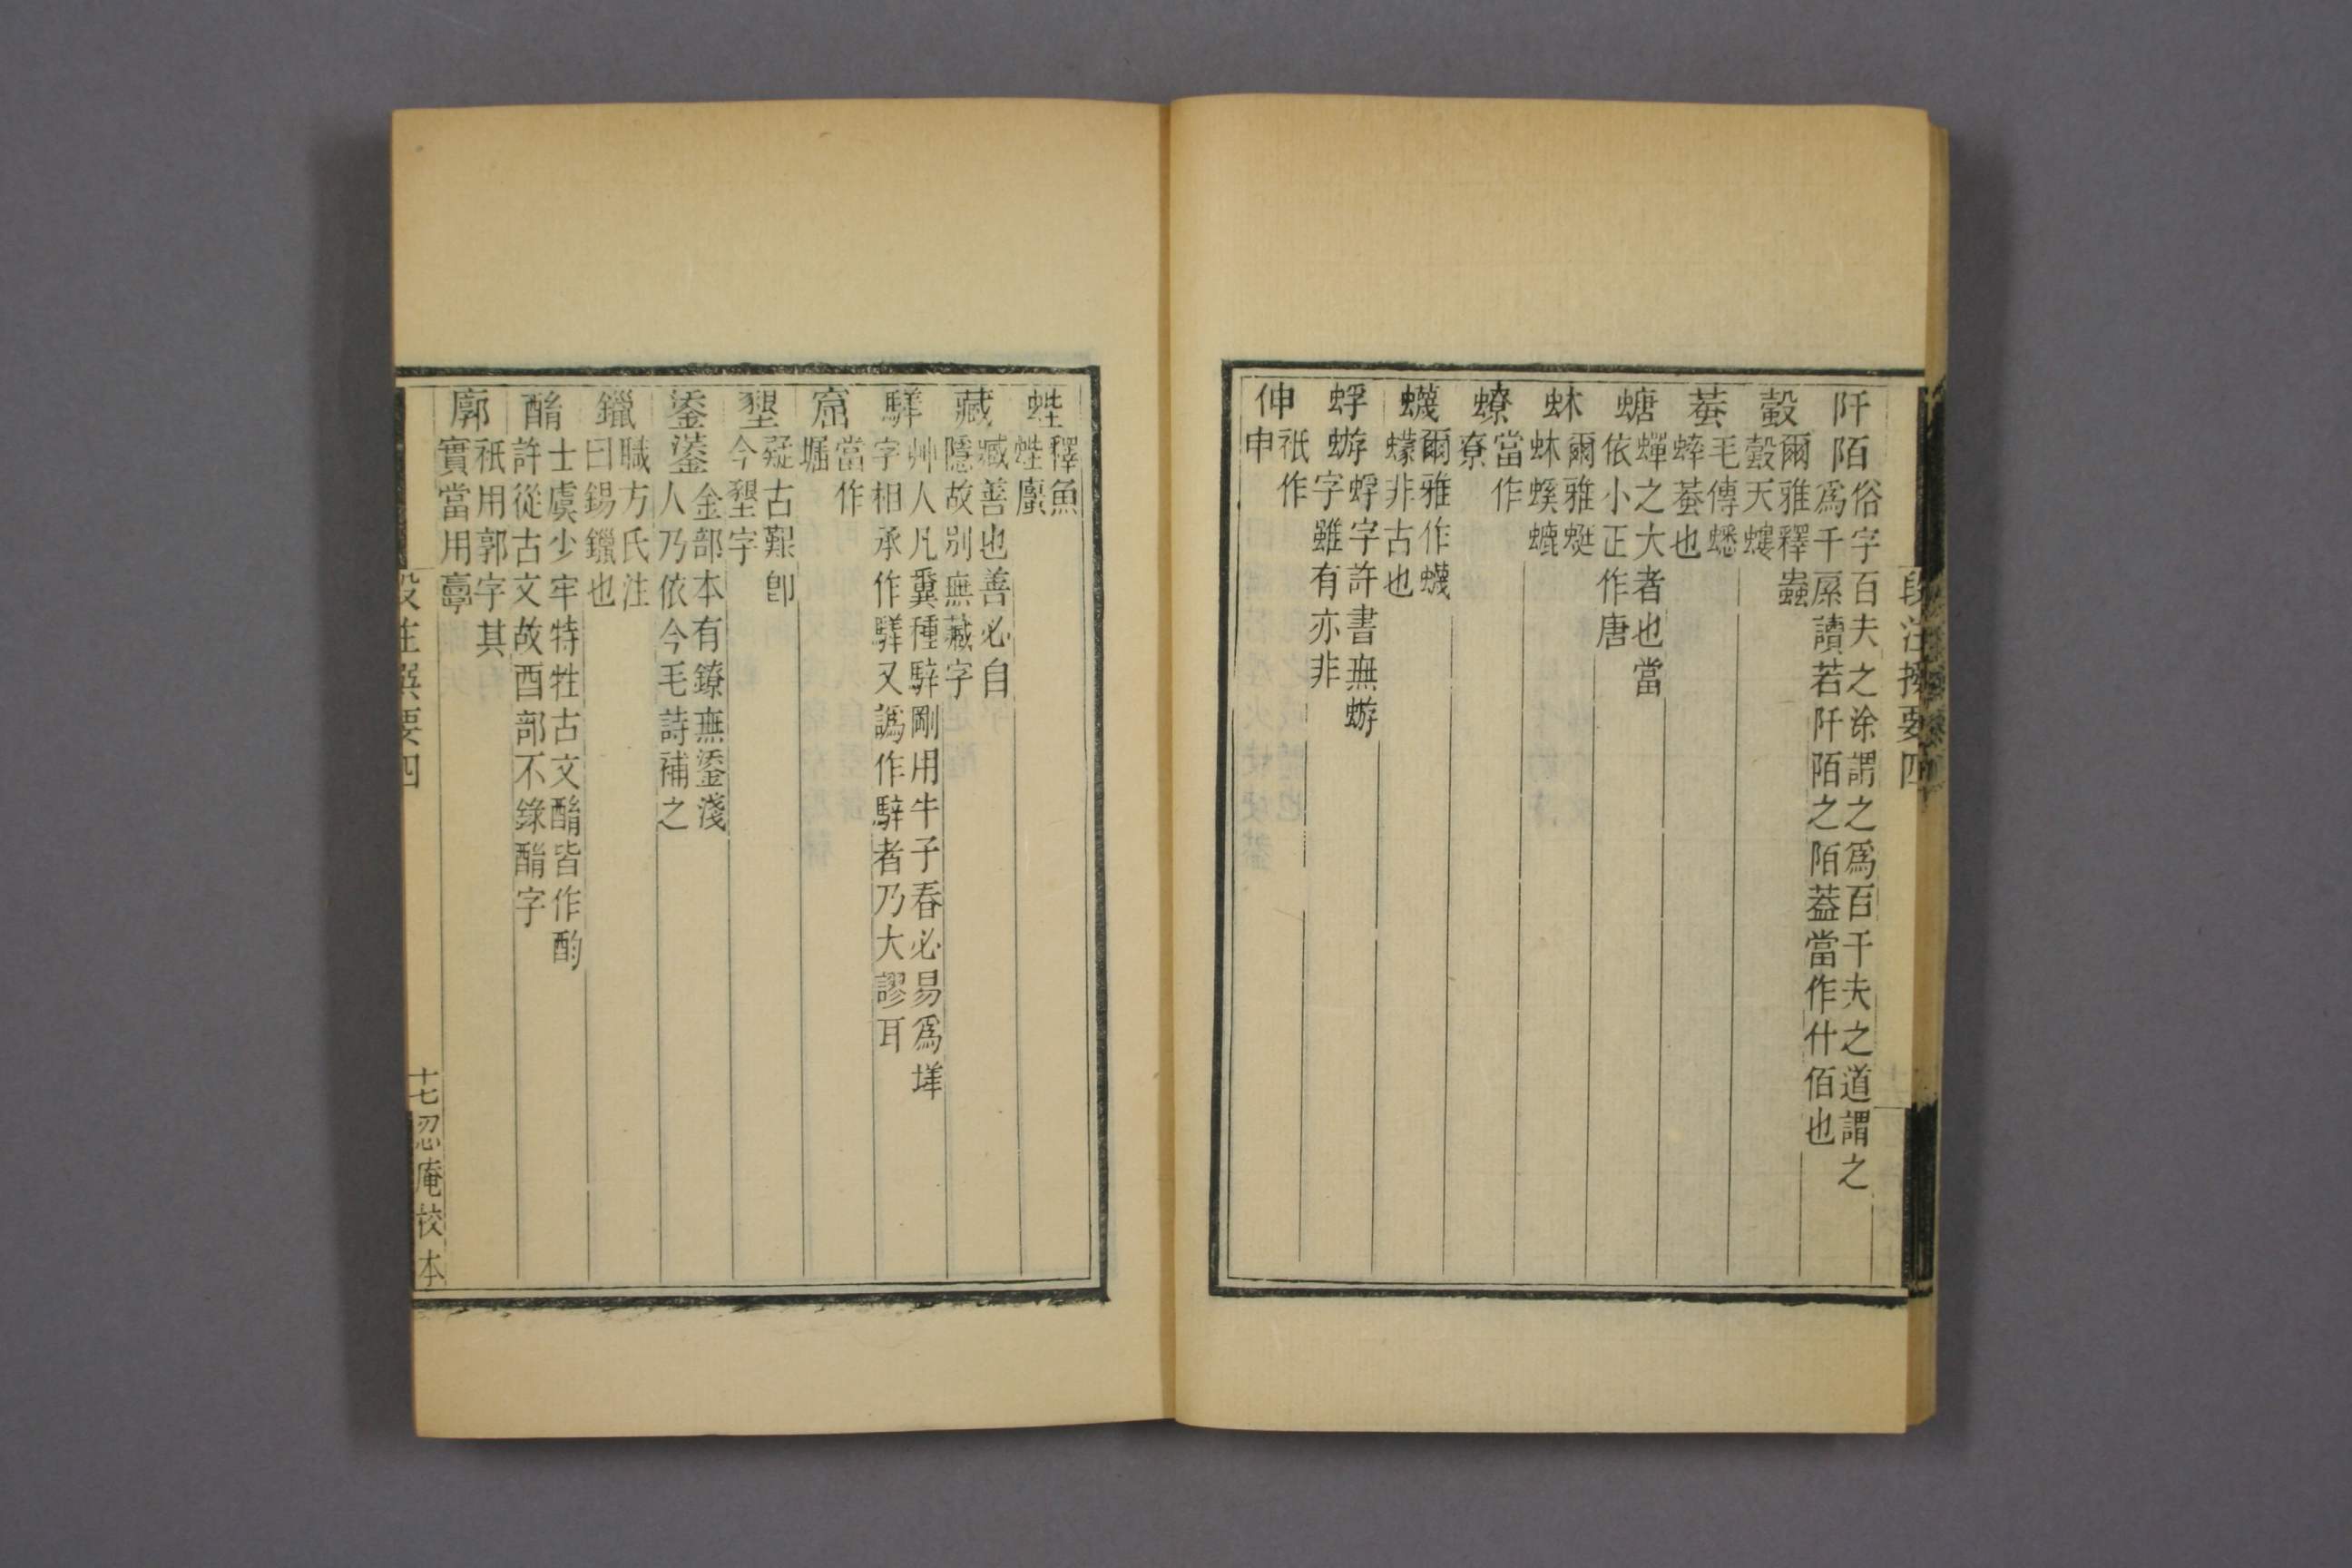 段注撰要四
阡陌
俗字百夫之涂謂之爲百千夫之道謂之
爲千讀若阡陌之陌葢當作什佰也
螜
爾雅釋蟲
螜天螻
蛬
毛傳蟋
蟀蛬也
螗
蟬之大者也當
依小正作唐
蚞
爾雅蜓
蚞螇螰
蟟
當作
尞
蠛
爾雅作蠛
蠓非古也
蜉蝣
蜉字許書無蝣
字雖有亦非
伸
衹作
申
蜌
釋魚
蜌蠯
藏
臧善也善必自
隱故別無藏字
驊
艸人凡糞種騂剛用牛子春必易爲垟
字相承作又譌作騂者乃大謬耳
窟
當作
堀
墾
疑古艱卽
今墾字
鋈鋈
金部本有鐐無鋈淺
人乃依今毛詩補之
鑞
職方氏注
曰錫鑞也
酳
士虞少牢特牲古文酳皆作酌
許從古文故酉部不錄酳字
廓
衹用郭字其
實當用𩫏
段注撰要四
十七
忍庵校本